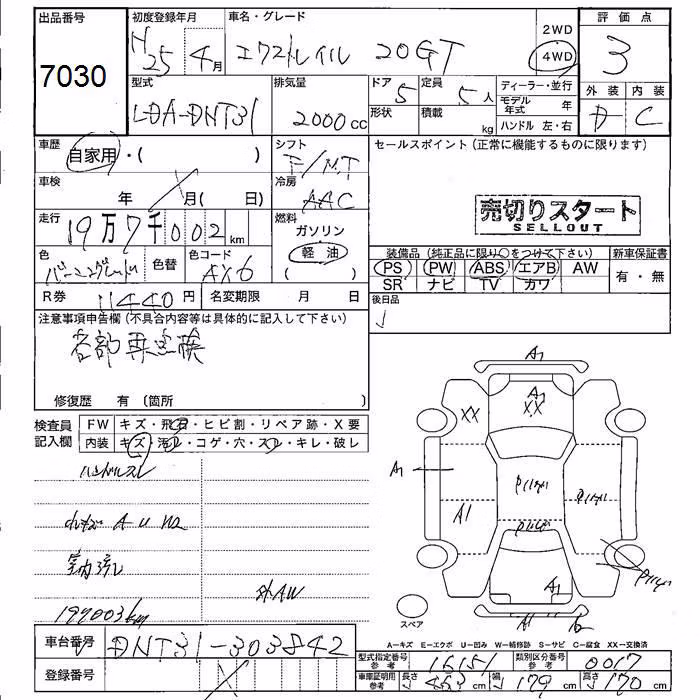 出品番号
7030
初度登録年月
H25 年 4月
車名・グレード
エクストレイル 20GT
2WD
4WD
評価点
3
外装 内装
D C
型式
LDA-DNT31
排気量
2000 cc
ドア 5
定員 5人
形状
積載 kg
ディーラー・並行
モデル年式 年
ハンドル 左・右
車歴
自家用・( )
シフト
F/MT
車検
年 月( 日)
冷房
AAC
走行
19万7千002 km
燃料
ガソリン
軽油
色
色替
色コード
AX6
R券 11440円
名変期限 月 日
セールスポイント(正常に機能するものに限ります)
売切りスタート
SELLOUT
装備品(純正品に限り〇をつけて下さい)
新車保証書
PS PW ABS エアB AW
SR ナビ TV カワ
有・無
後日品
注意事項申告欄(不具合内容等は具体的に記入して下さい)
各部要点検
修復歴 有(箇所 )
検査員記入欄
FW キズ・飛石・ヒビ割・リペア跡・X要
内装 キズ・汚レ・コゲ・穴・スレ・キレ・破レ
ハンドルスレ
A U W2
室内汚レ
外AW
197003km
A1
A2
XX
XX
A1
A1
A1
A1
スペア
A-キズ E-エクボ U-凹み W-補修跡 S-サビ C-腐食 XX-交換済
車台番号 DNT31-303842
登録番号
型式指定番号 参考 16151
類別区分番号 参考 0017
車庫証明用 参考
長さ 463 cm
幅 179 cm
高さ 170 cm